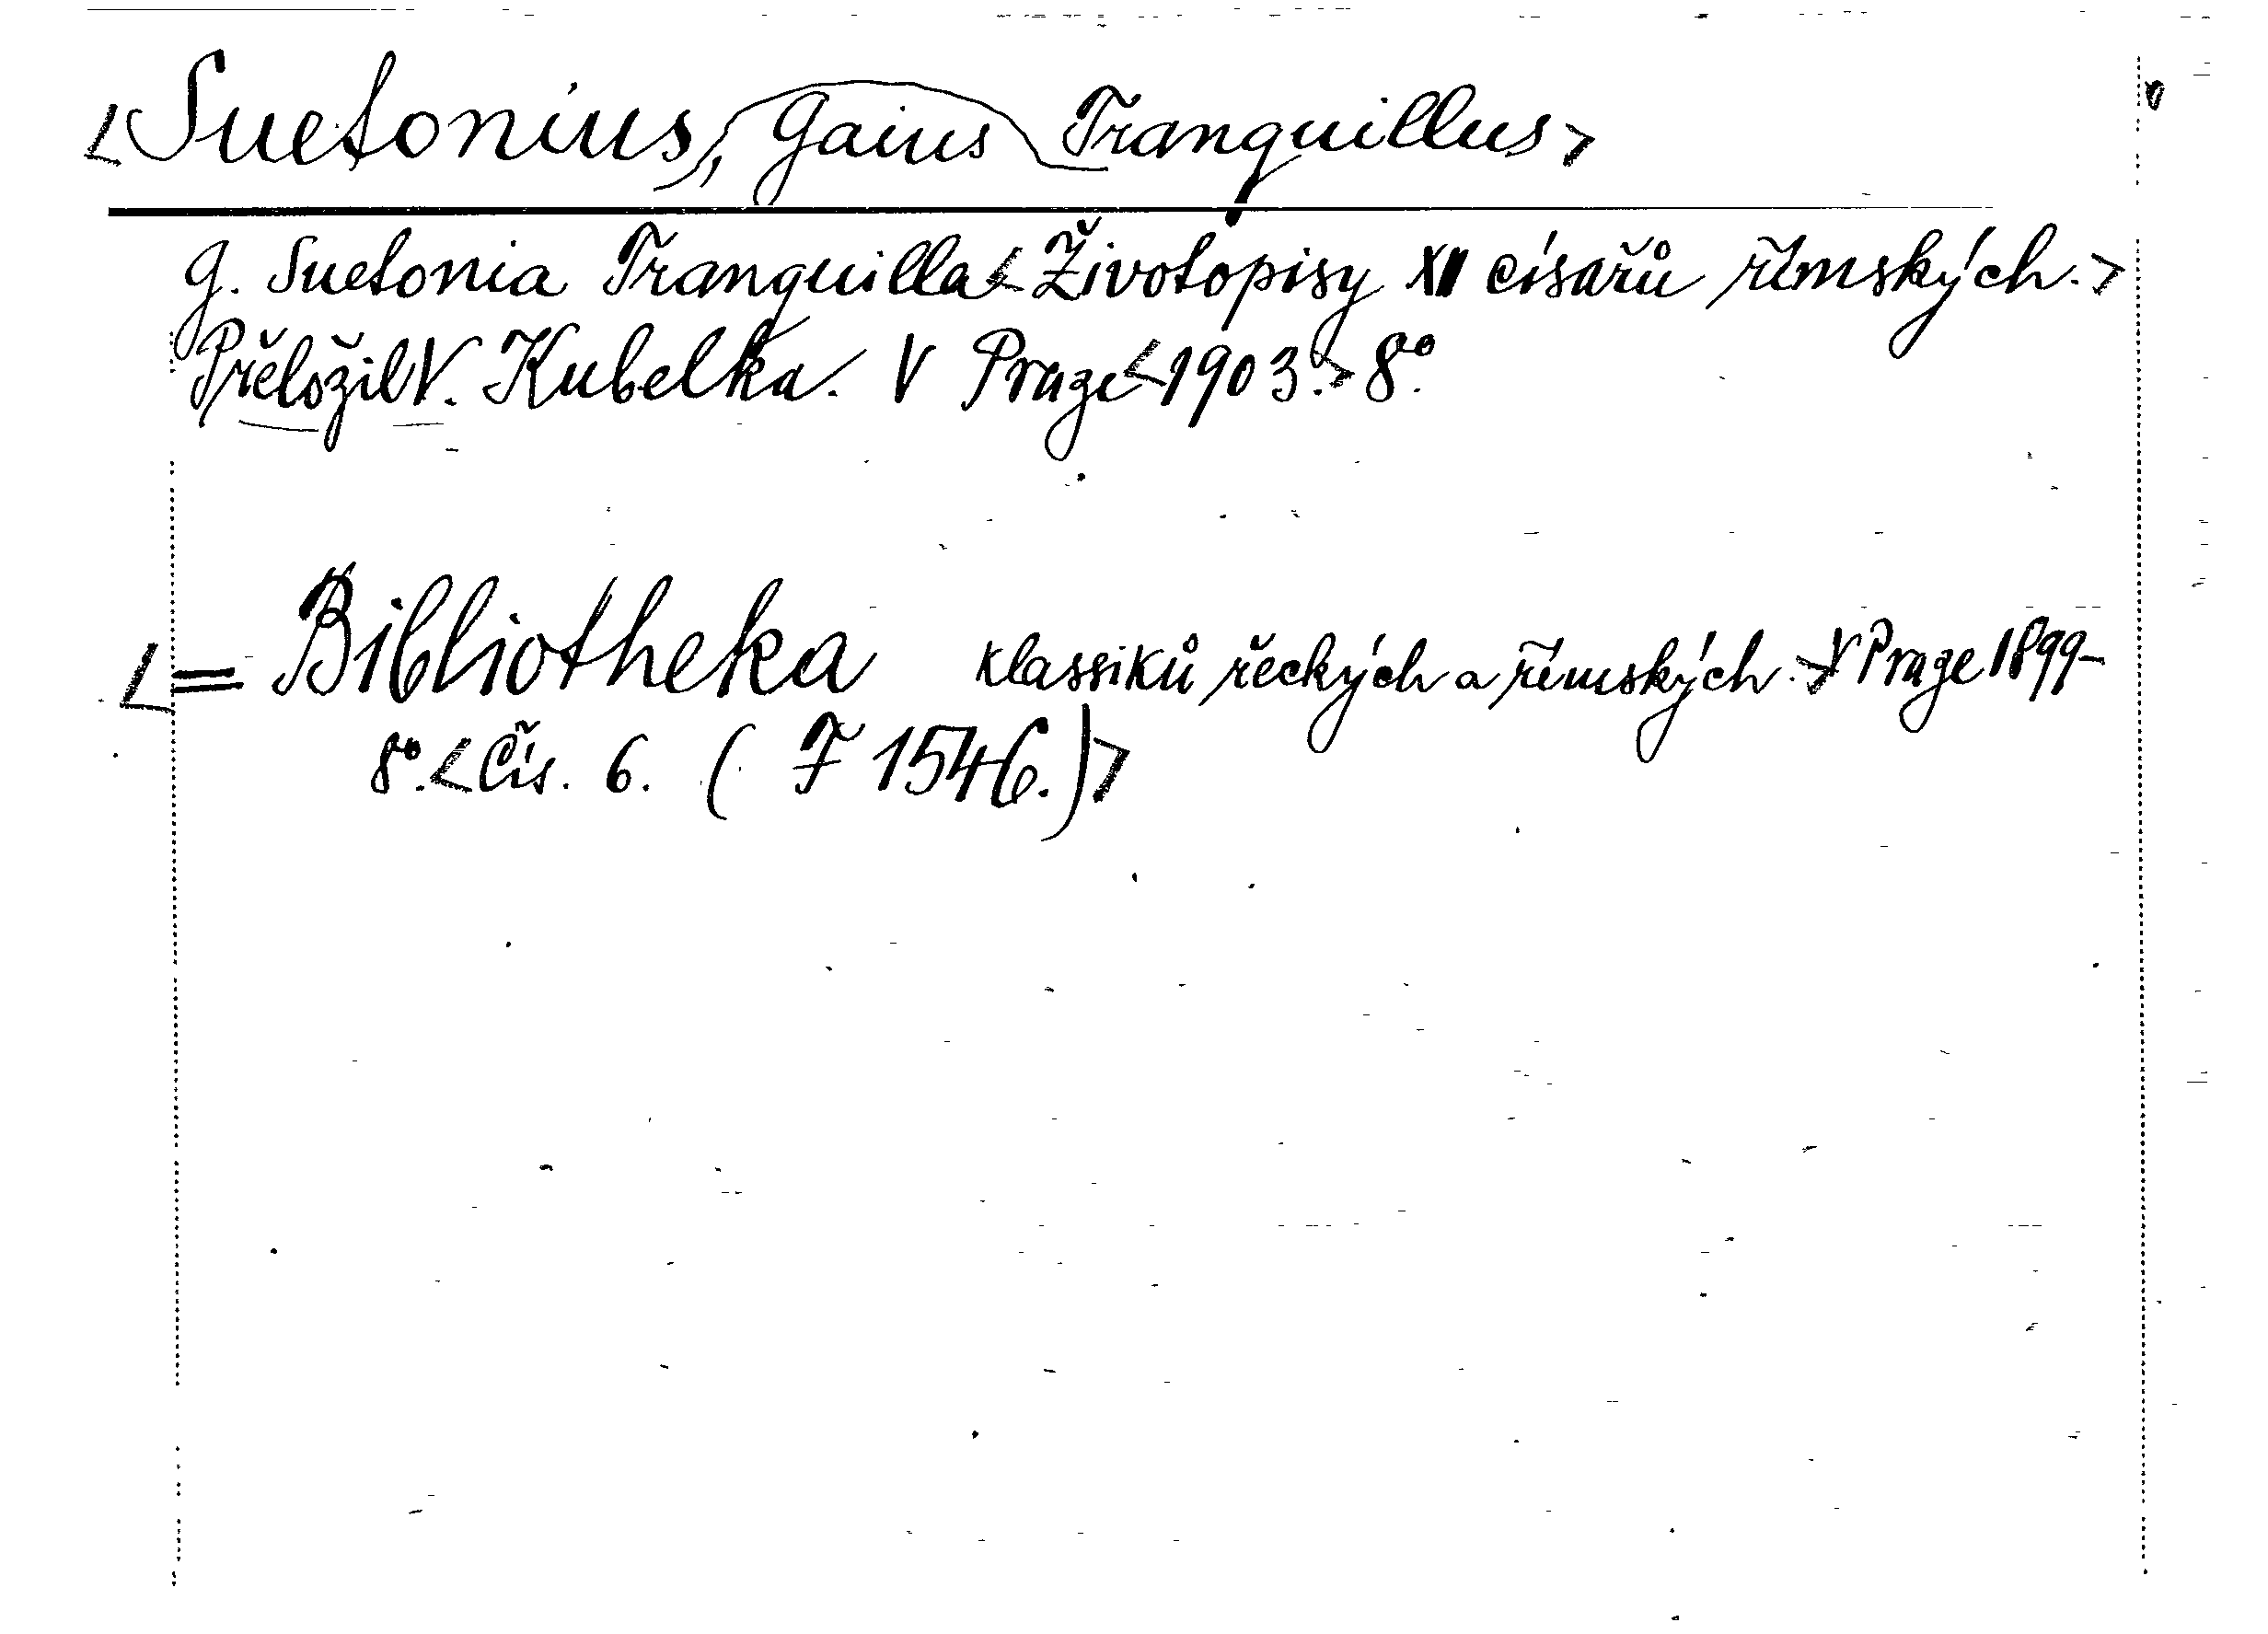 <Suetonius, Gaius Tranquillus>
G. Suetonia Tranquilla <Životopisy XII císařů římských.>
Přeložil V. Kubelka. V Praze <1903.> 8°.
<= Bibliotheka klassiků řeckých a římských.> V Praze 1899-
8°. <Čís. 6. (F 1546.)>